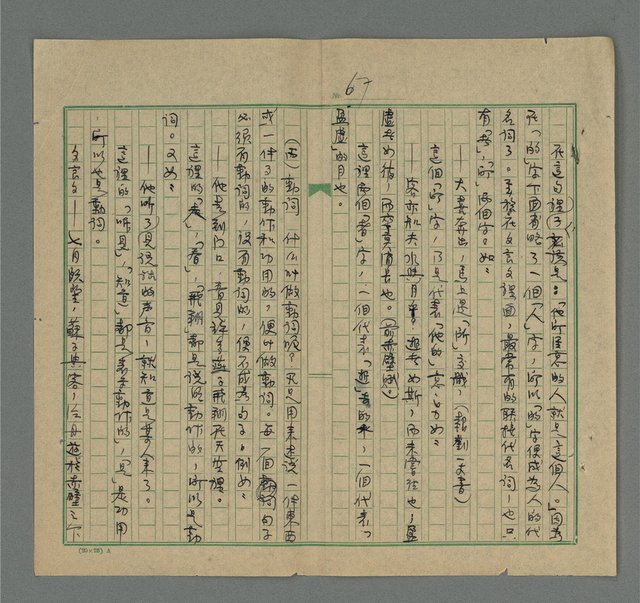 67
在這句裡，應該是：「他所喜歡的人就是這個人。」因為
在「的」字下面省略了一個「人」字，所以「的」字便成為人的代
名詞了。至於在文言文裡面，最常有的聯接代名詞，也只
有「者」，「所」兩個字。如：
這個「所」字，了是代表「他的」意思。又如：
——客亦知夫水與月乎，逝者如斯，而未嘗往也，盈
虛者如彼，而卒莫消長也。（前赤壁賦）
這裡兩個「者」字，一個代表「逝」者的水，一個代表「
盈虛」的月也。
(丙)動詞　什么叫做動詞呢？凡是用來述說一件東西
或一件事的動作和功用的，便叫做動詞。每一個句子
必須有動詞的，沒有動詞的，便不成為句子。例如：
他走到門口，看見許多燕子飛翔在天空裡。
這裡的「走」，「看」，「飛翔」都是說明動作的，所以是動
詞。又如：
——他聽了見說話的声音，就知道是某人來了。
這裡的「听見」，「知道」都是表示動作的，「是」是功用
，所以也是動詞。
文言句——七月既望，蘇子與客，泛舟遊於赤壁之下
(20×25) A